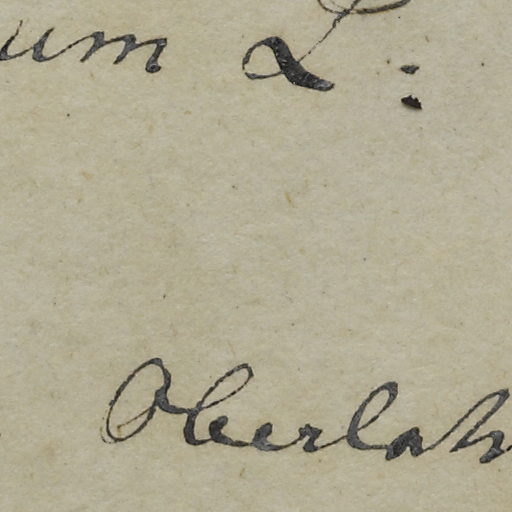 um L:
Oberlah